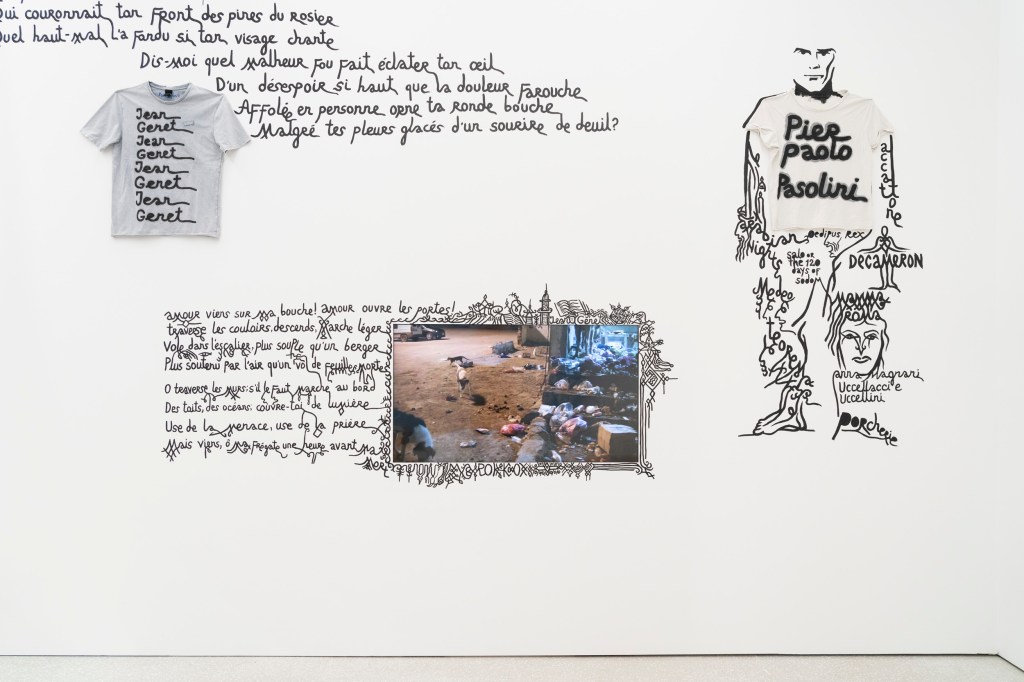 Qui couronnait ton front des pines du rosier
Quel haut-mal l'a fardu si ton visage chante
Dis-moi quel malheur fou fait éclater ton œil
D'un désespoir si haut que la douleur farouche
Affolée en personne orne ta ronde bouche
Malgré tes pleurs glacés d'un sourire de deuil?
Jean
Genet
Jean
Genet
Jean
Genet
Jean
Genet
amour viens sur ma bouche! amour ouvre les portes!
traverse les couloirs, descends, marche léger
Vole dans l'escalier, plus souple qu'un berger
Plus soutenu par l'air qu'un vol de feuilles mortes
O traverse les murs; s'il le faut marche au bord
Des toits, des océans, couvre-toi de lumière
Use de la menace, use de la prière
Mais viens, ô ma frégate une heure avant ma
Mort
Jean Genet
Pier
Paolo
Pasolini
accattone
Arabian
Nights
Oedipus Rex
Salo or
the 120
days of
sodom
DECAMERON
Medea
Teorema
MAMMA
ROMA
anna magnani
Uccellacci e
Uccellini
Porcherie